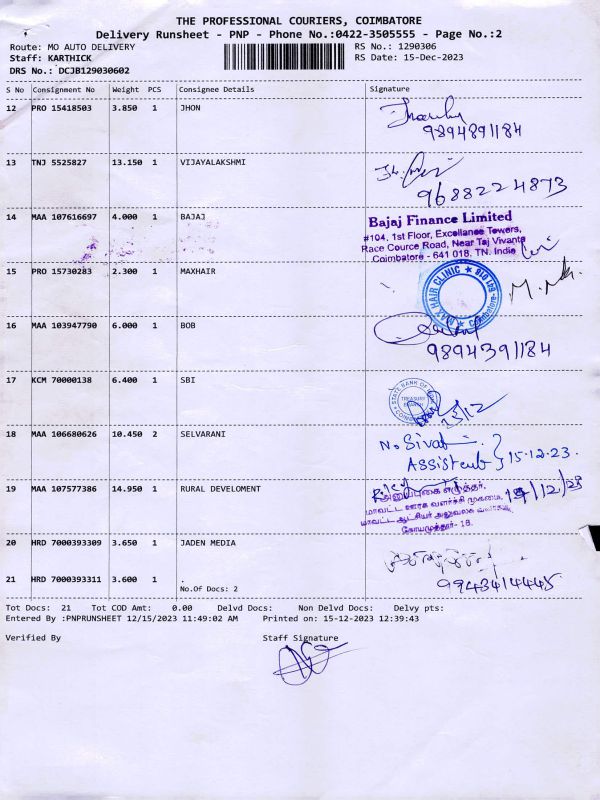 THE PROFESSIONAL COURIERS, COIMBATORE
Delivery Runsheet - PNP - Phone No.:0422-3505555 - Page No.:2
Route: MO AUTO DELIVERY
RS No.: 1290306
Staff: KARTHICK
RS Date: 15-Dec-2023
DRS No.: DCJB129030602
S No Consignment No Weight PCS Consignee Details Signature
12 PRO 15418503 3.850 1 JHON
9894891184
13 TNJ 5525827 13.150 1 VIJAYALAKSHMI
9688224873
14 MAA 107616697 4.000 1 BAJAJ
Bajaj Finance Limited
#104, 1st Floor, Excellance Towers,
Race Cource Road, Near Taj Vivanta
Coimbatore - 641 018. TN. India
15 PRO 15730283 2.300 1 MAXHAIR
MAX HAIR CLINIC
Coimbatore-641 018
16 MAA 103947790 6.000 1 BOB
9894391184
17 KCM 70000138 6.400 1 SBI
STATE BANK OF
TREASURY
15/12
18 MAA 106680626 10.450 2 SELVARANI
15.12.23.
19 MAA 107577386 14.950 1 RURAL DEVELOMENT
அனுப்புகை எழுத்தர்,
மாவட்ட ஊரக வளர்ச்சி முகமை,
மாவட்ட ஆட்சியர் அலுவலக
கோயமுத்தூர்- 18.
20 HRD 7000393309 3.650 1 JADEN MEDIA
21 HRD 7000393311 3.600 1 .
9943414445
No.Of Docs: 2
Tot Docs: 21 Tot COD Amt: 0.00 Delvd Docs: Non Delvd Docs: Delvy pts:
Entered By :PNPRUNSHEET 12/15/2023 11:49:02 AM Printed on: 15-12-2023 12:39:43
Verified By Staff Signature